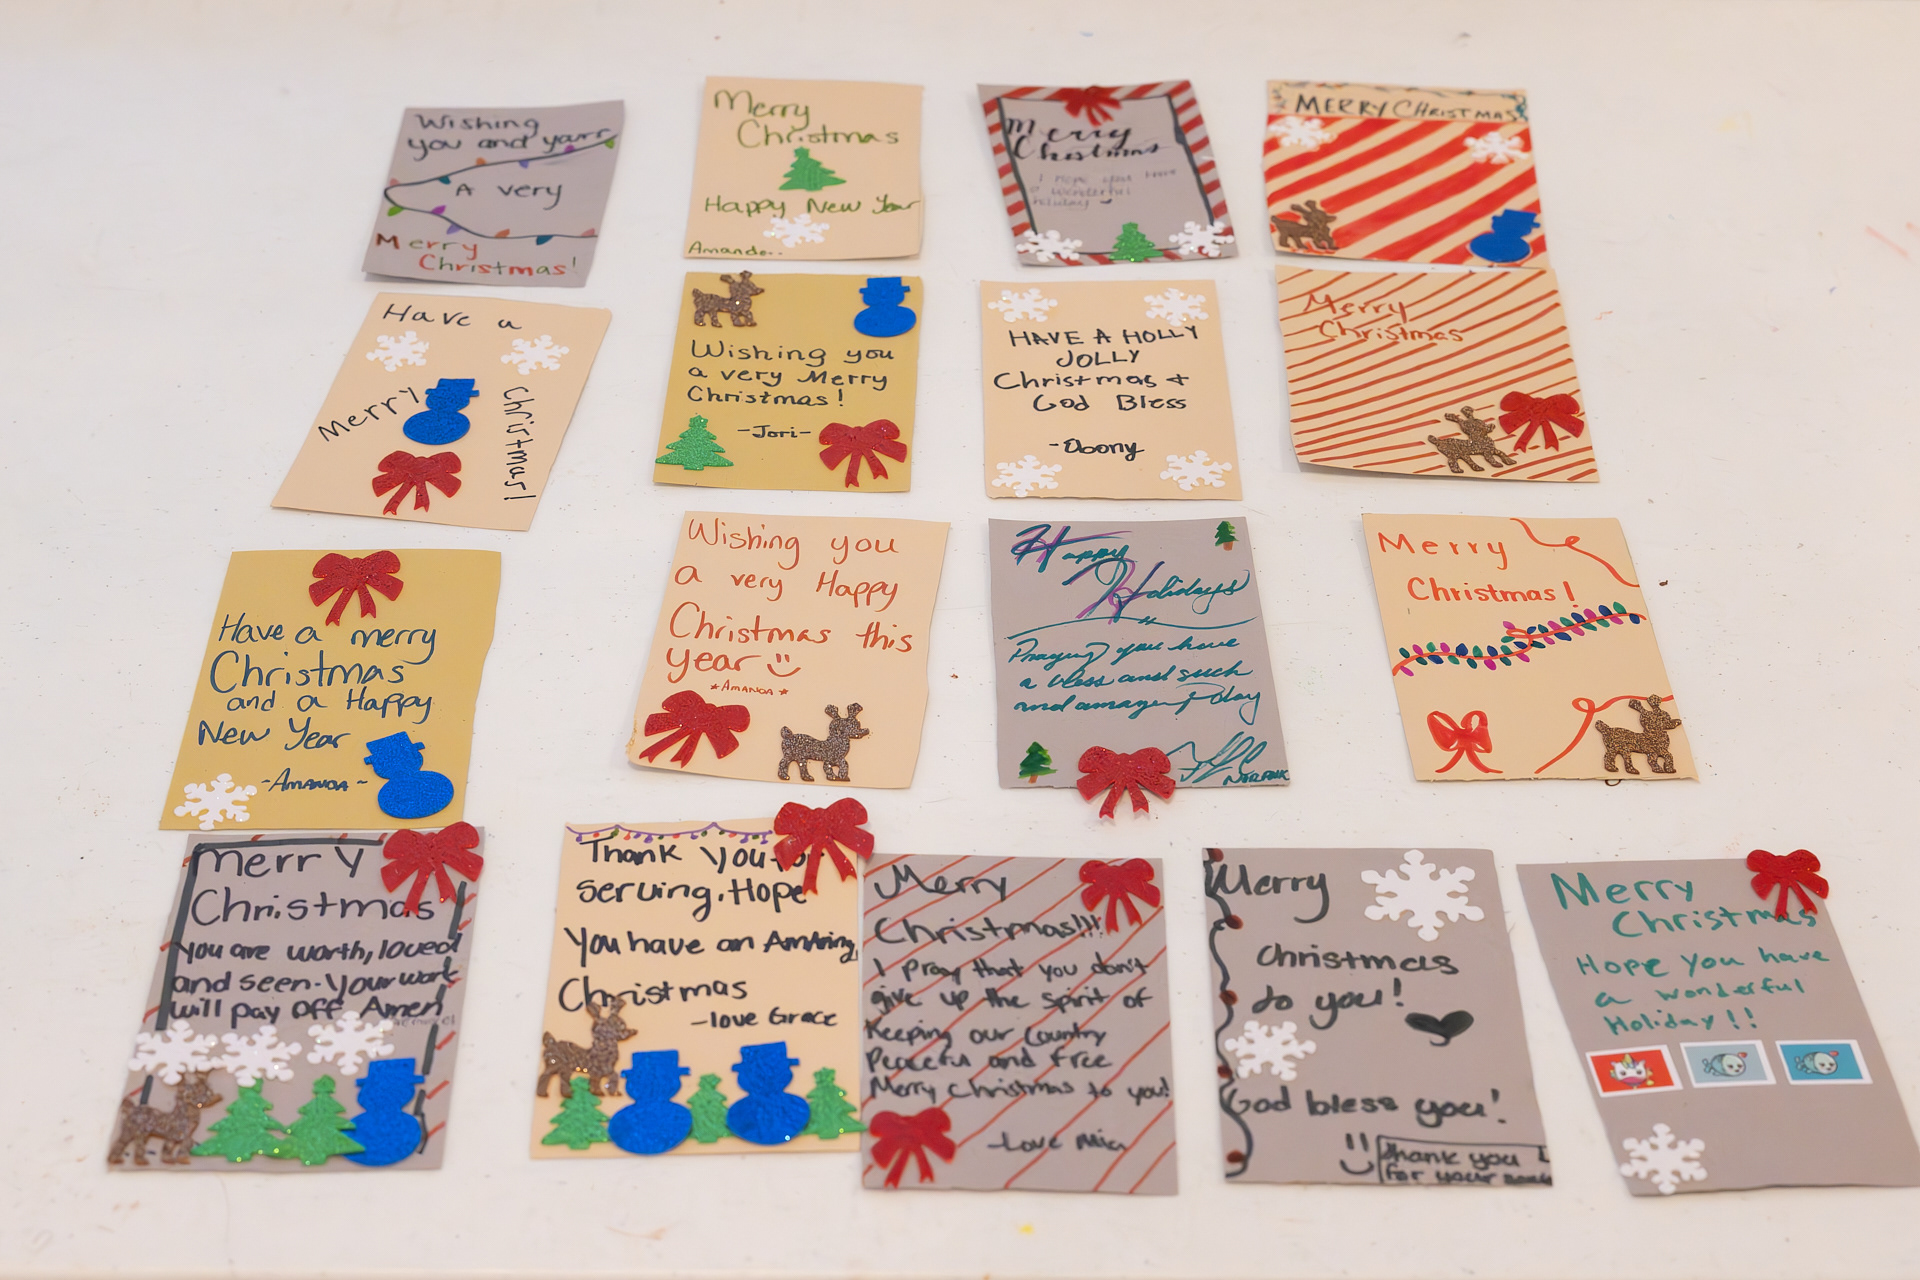 Wishing
you and yours
A very
Merry
Christmas!
Merry
Christmas
Happy New Year
Amanda..
Merry
Christmas
I hope you have
a wonderful
holiday
MERRY CHRISTMAS
Have a
Merry
Christmas!
Wishing you
a very Merry
Christmas!
-Jori-
HAVE A HOLLY
JOLLY
Christmas +
God Bless
-Ebony
Merry
Christmas
Have a merry
Christmas
and a Happy
New Year
-AMANDA~
Wishing you
a very Happy
Christmas this
year
*AMANDA*
Happy
Holidays
Praying you have
a bless and such
and amazing day
NORFOLK
Merry
Christmas!
Merry
Christmas
You are worth, loved
and seen. Your work
will pay off Amen
Thank You for
serving. Hope
You have an Amazing
Christmas
-love Grace
Merry
Christmas!!!
I pray that you don't
give up the spirit of
Keeping our Country
Peaceful and free
Merry Christmas to you!
-Love Mia
Merry
Christmas
to you!
God bless you!
Thank you
for your
Merry
Christmas
Hope you have
a wonderful
Holiday!!